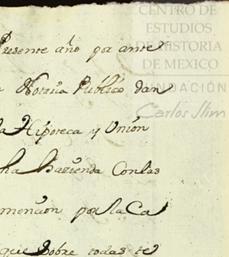 CENTRO DE
ESTUDIOS
DE HISTORIA
DE MEXICO
FUNDACIÓN
Carlos Slim
Presente año por ante
Notaria Público dan
la Hipoteca y Unión
ha hazienda Con las
mencion por la Ca
que sobre todas